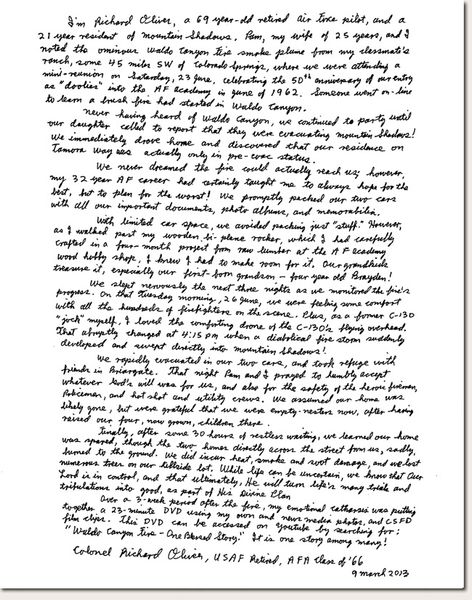 I'm Richard Oliver, a 69 year-old retired air force pilot, and a
21 year resident of Mountain Shadows. Pam, my wife of 25 years, and I
noted the ominous Waldo Canyon fire smoke plume from my classmate's
ranch, some 45 miles SW of Colorado Springs, where we were attending a
mini-reunion on Saturday, 23 June, celebrating the 50th anniversary of our entry
as "doolies" into the AF academy in June of 1962. Someone went on-line
to learn a brush fire had started in Waldo Canyon.
Never having heard of Waldo Canyon, we continued to party until
our daughter called to report that they were evacuating Mountain Shadows!
We immediately drove home and discovered that our residence on
Tamora Way was actually only in pre-evac status.
We never dreamed the fire could actually reach us; however,
my 32 year AF career had certainly taught me to always hope for the
best, but to plan for the worst! We promptly packed our two cars
with all our important documents, photo albums, and memorabilia.
With limited car space, we avoided packing just "stuff." However,
as I walked past my wooden bi-plane rocker, which I had carefully
crafted in a four-month project from raw lumber at the AF academy
wood hobby shop, I knew I had to make room for it. Our grandkids
treasure it, especially our first-born grandson - four year old Brayden!
We slept nervously the next three nights as we monitored the fire's
progress. On that Tuesday morning, 26 June, we were feeling some comfort
with all the hundreds of firefighters on the scene. Plus, as a former C-130
"jock" myself, I loved the comforting drone of the C-130's flying overhead.
That abruptly changed at 4:15 PM when a diabolical fire storm suddenly
developed and swept directly into Mountain Shadows!
We rapidly evacuated in our two cars, and took refuge with
friends in Briargate. That night Pam and I prayed to humbly accept
whatever God's will was for us, and also for the safety of the heroic firemen,
Policemen, and hot shot and utility crews. We assumed our home was
likely gone, but were grateful that we were empty-nesters now, after having
raised our four, now grown, children there.
Finally, after some 30 hours of restless waiting, we learned our home
was spared, though the two homes directly across the street from us, sadly,
burned to the ground. We did incur heat, smoke and soot damage, and we lost
numerous trees on our hillside lot. While life can be uncertain, we know that our
Lord is in control, and that ultimately, He will turn life's many trials and
tribulations into good, as part of His Divine Plan
Over a 3-week period after the fire, my emotional catharsis was putting
together a 23-minute DVD using my own and news media photos, and CSFD
film clips. This DVD can be accessed on youtube by searching for;
"Waldo Canyon Fire - One Blessed Story." It is one story among many!
Colonel Richard Oliver, USAF Retired, AFA Class of '66
9 March 2013